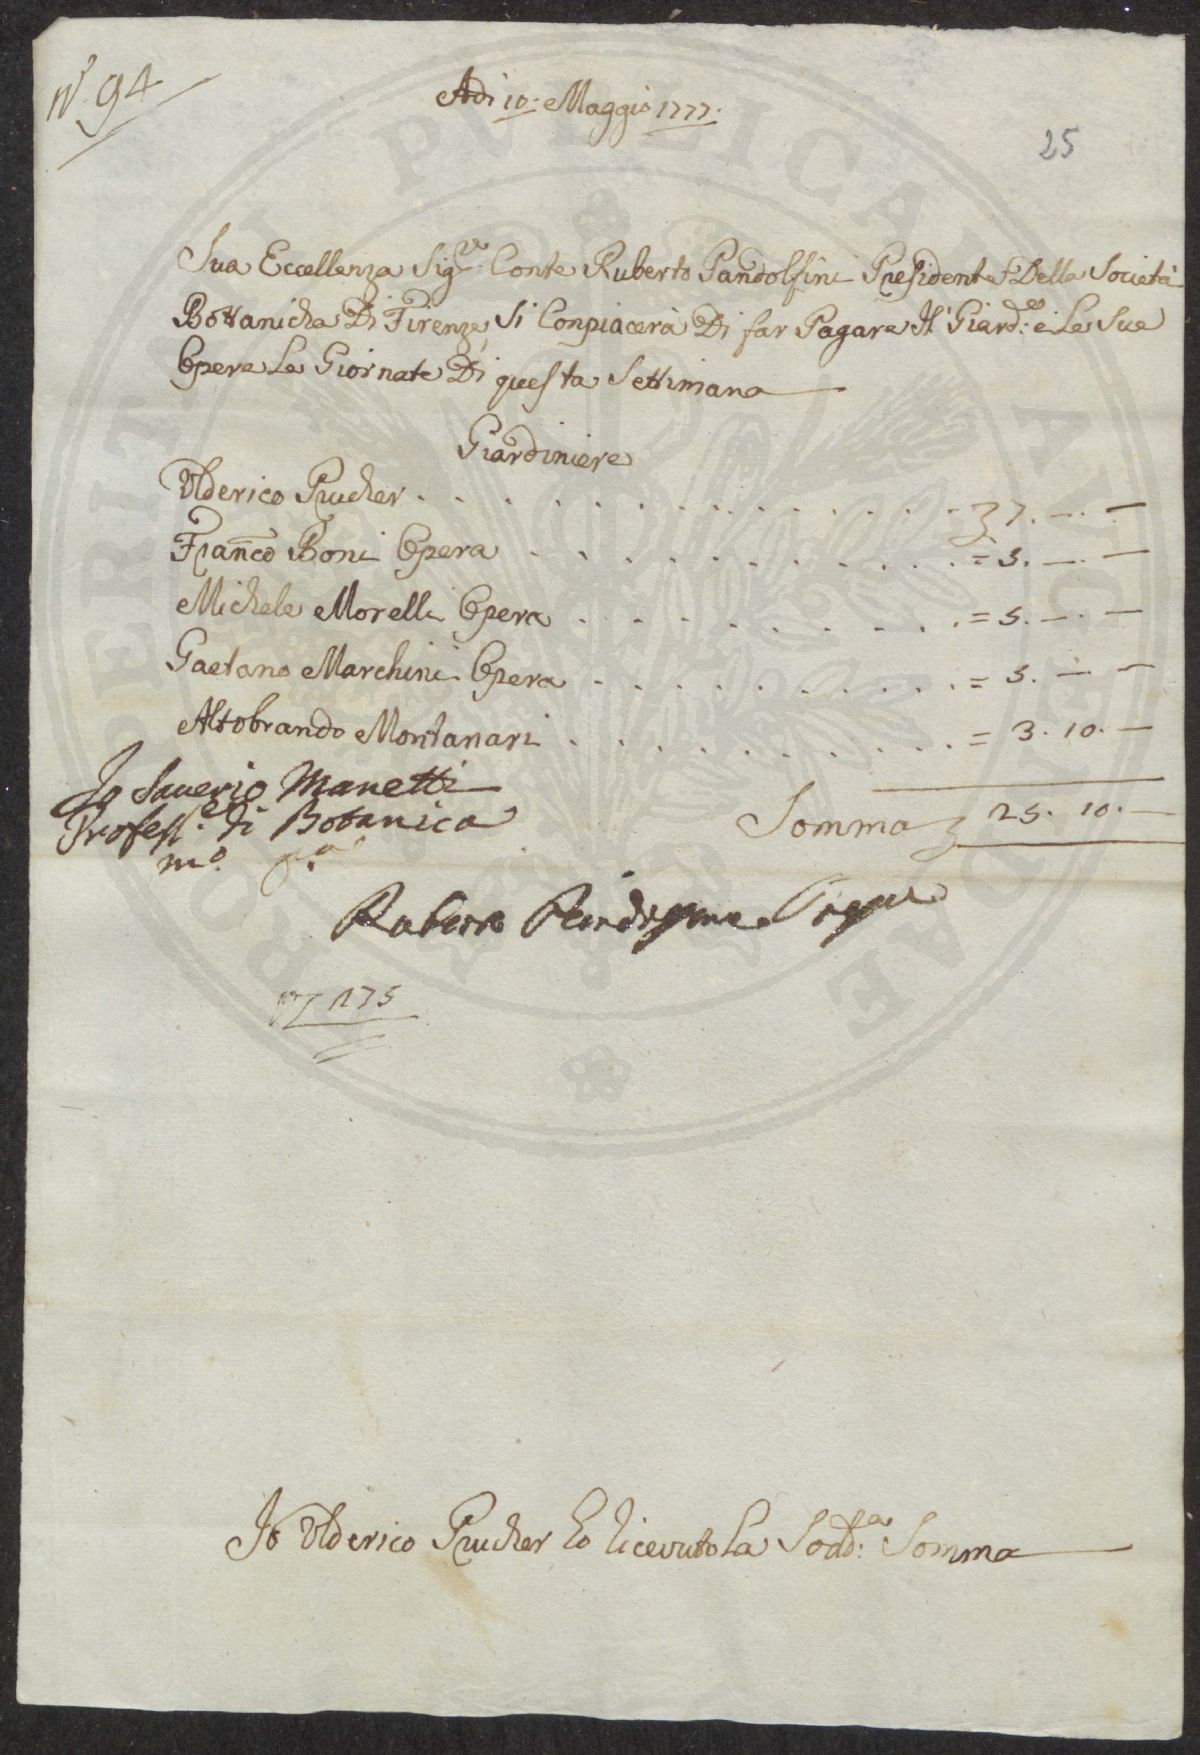 N.º 94
Adi 10: Maggio 1777:
25
Sua Eccellenza Sig.re Conte Ruberto Pandolfini Presidente Della Società
Bottanicha Di Firenze, Si Conpiacerà Di far Pagare Il Giard:e e Le Sue
Opere Le Giornate Di questa Settimana
Giardiniere
Ulderico Prucher . . . . . . . . . . . . 7. —. —
Franco Boni Opera . . . . . . . . . . = 5. —. —
Michele Morelli Opera . . . . . . . . . = 5. —. —
Gaetano Marchini Opera . . . . . . . . . = 5. —. —
Altobrando Montanari . . . . . . . . . = 3. 10. —
Somma 25. 10. —
Io Saverio Manetti
Profess.e di Botanica
mo. pa.
Ruberto Pandolfini
175
Io Ulderico Prucher ho ricevuto La Sodd:a Somma